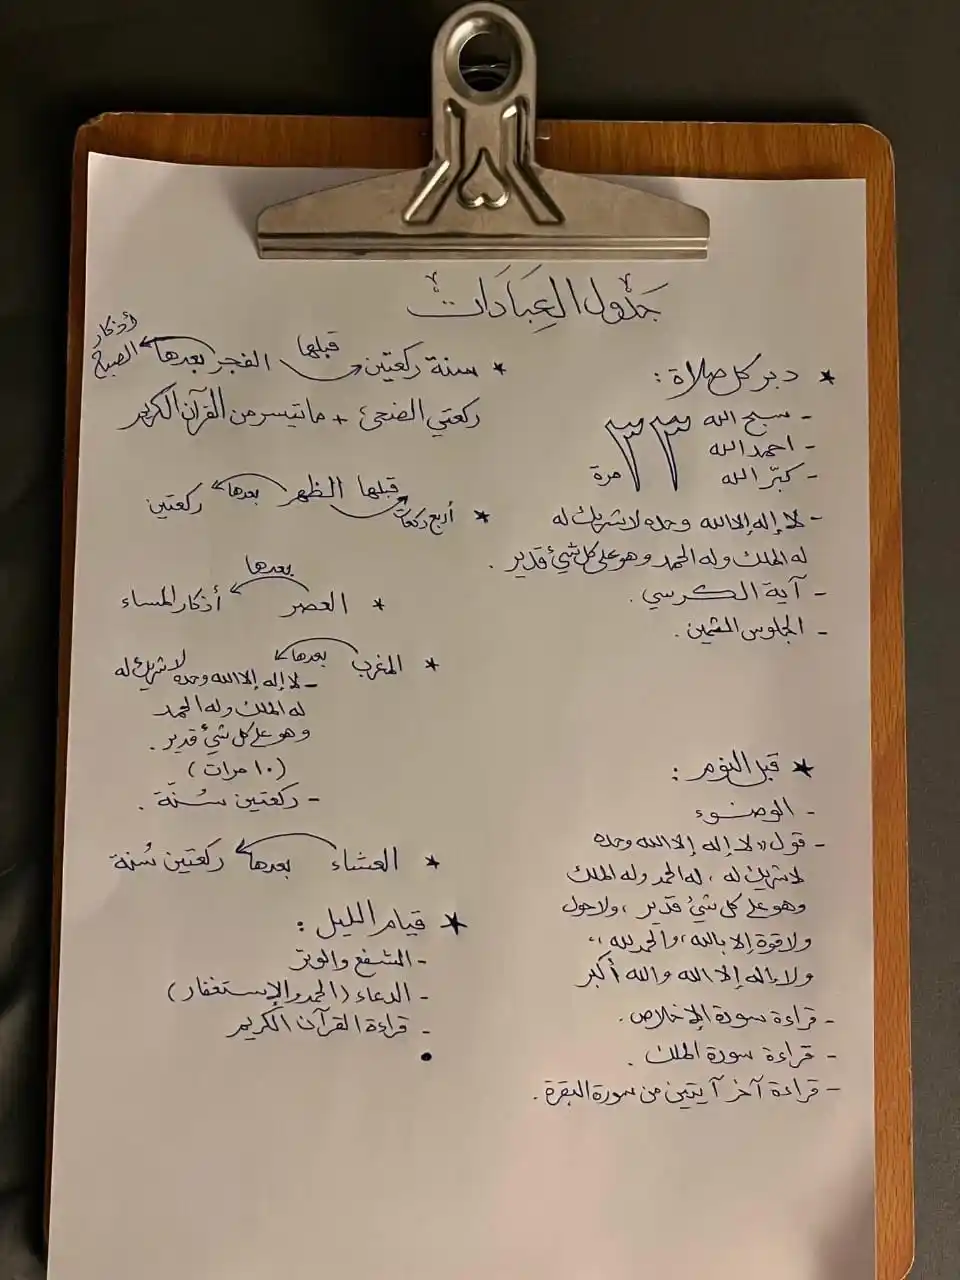 جَدْوَل العِبَادَات
* دبر كل صلاة :
- سبح الله
- احمد الله
- كبّر الله
٣٣ مرة
- لا إله إلا الله وحده لا شريك له
له الملك وله الحمد وهو على كل شيء قدير .
- آية الكرسي .
- الجلوس الثمين .
* قبل النوم :
- الوضوء
- قول " لا إله إلا الله وحده
لا شريك له ، له الحمد وله الملك
وهو على كل شيء قدير ، ولا حول
ولا قوة إلا بالله ، والحمد لله ،
ولا إله إلا الله والله أكبر
- قراءة سورة الإخلاص .
- قراءة سورة الملك .
- قراءة آخر آيتين من سورة البقرة .
* سنة ركعتين قبلها الفجر بعدها أذكار الصبح
ركعتي الضحى + ما تيسر من القرآن الكريم
* أربع ركعات قبلها الظهر بعدها ركعتين
* العصر بعدها أذكار المساء
* المغرب بعدها
- لا إله إلا الله وحده لا شريك له
له الملك وله الحمد
وهو على كل شيء قدير .
(١٠ مرات)
- ركعتين سُنّة .
* العشاء بعدها ركعتين سُنة
* قيام الليل :
- الشفع والوتر
- الدعاء (الحمد والإستغفار)
- قراءة القرآن الكريم